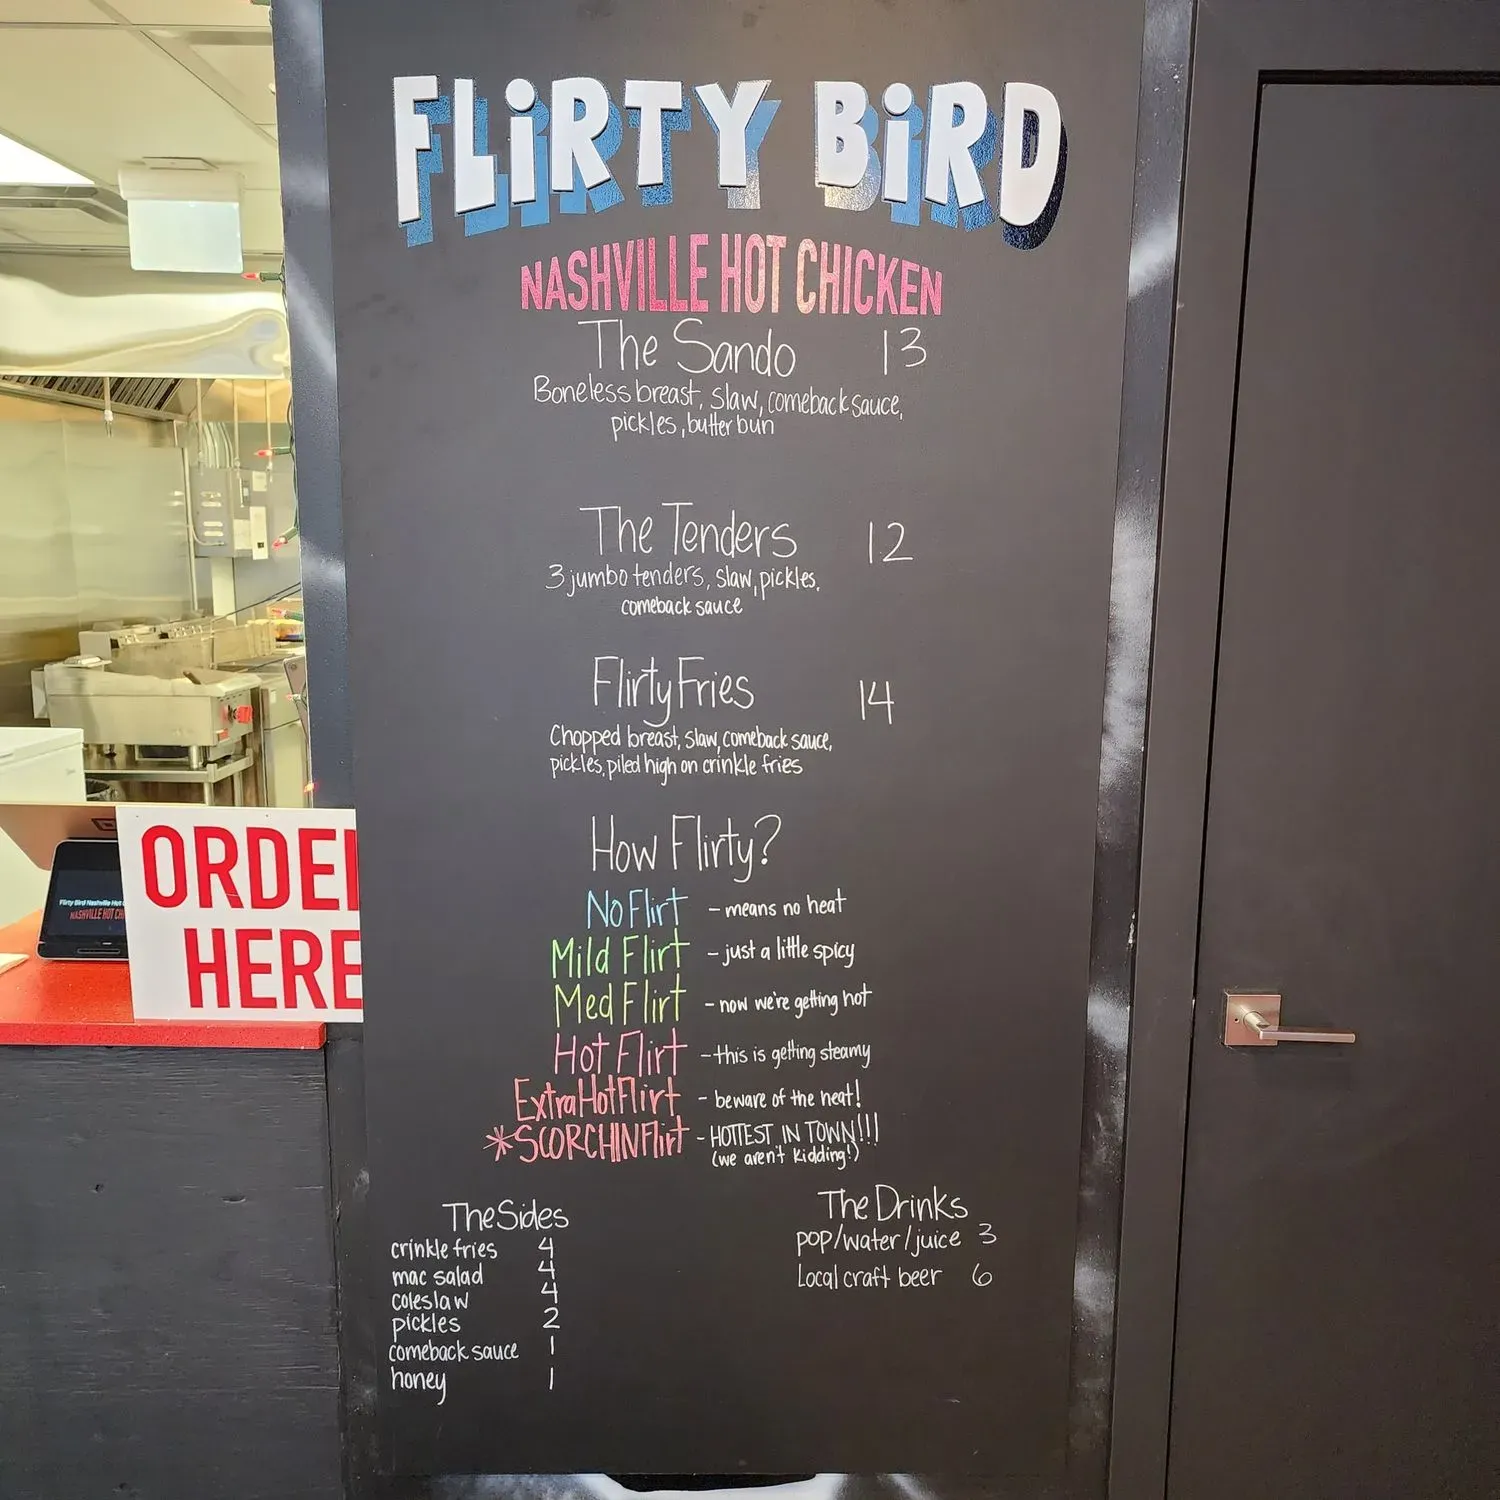 FLiRTY BiRD
NASHVILLE HOT CHICKEN
The Sando 13
Boneless breast, slaw, comeback sauce,
pickles, butter bun
The Tenders 12
3 jumbo tenders, slaw, pickles,
comeback sauce
Flirty Fries 14
Chopped breast, slaw, comeback sauce,
pickles, piled high on crinkle fries
How Flirty?
No Flirt - means no heat
Mild Flirt - just a little spicy
Med Flirt - now we're getting hot
Hot Flirt - this is getting steamy
Extra Hot Flirt - beware of the heat!
*SCORCHIN Flirt - HOTTEST IN TOWN!!!
(we aren't kidding!)
The Sides
crinkle fries 4
mac salad 4
coleslaw 4
pickles 2
comeback sauce 1
honey 1
The Drinks
pop/water/juice 3
Local craft beer 6
ORDER
HERE
Flirty Bird Nashville Hot
NASHVILLE HOT CHI